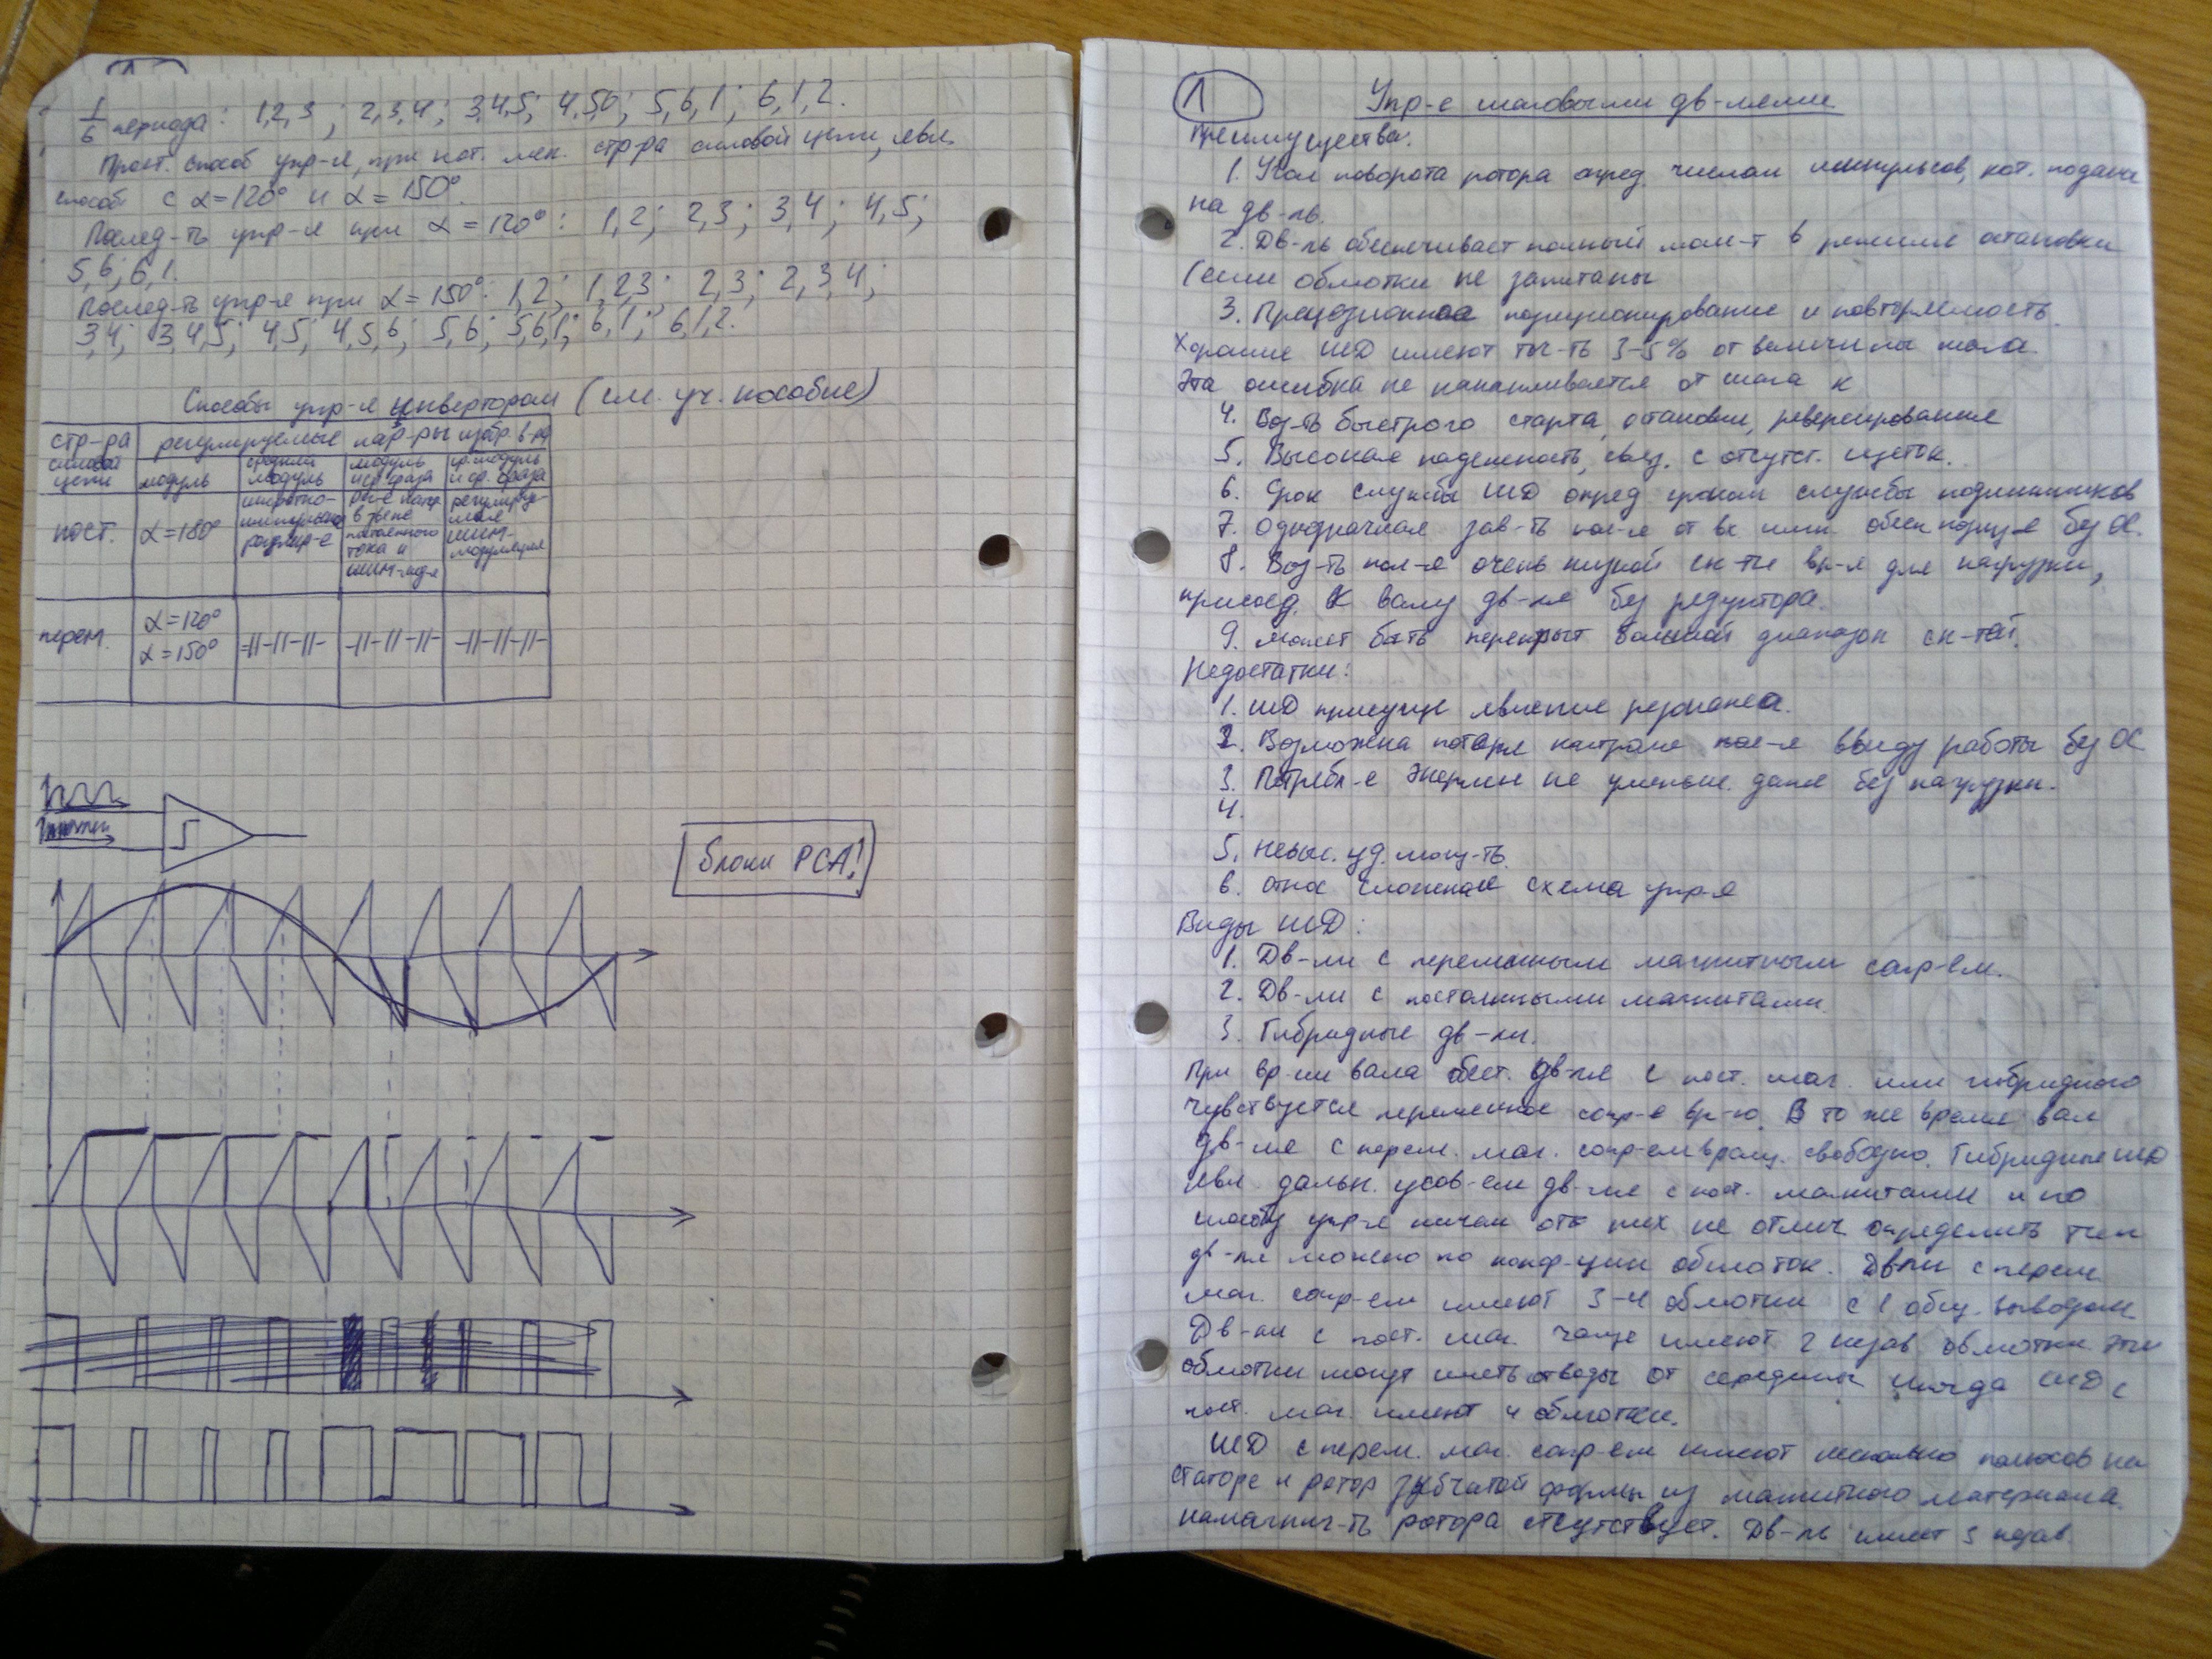 1/6 периода: 1,2,3; 2,3,4; 3,4,5; 4,5,6; 5,6,1; 6,1,2.
Прост. способ упр-я, при пост. стр-ра силовой цепи, явл.
способ с α=120° и α=150°.
Послед-ть упр-я при α=120°: 1,2; 2,3; 3,4; 4,5;
5,6; 6,1.
Послед-ть упр-я при α=150°: 1,2; 1,2,3; 2,3; 2,3,4;
3,4; 3,4,5; 4,5; 4,5,6; 5,6; 5,6,1; 6,1; 6,1,2.
Способы упр-я инвертором (см. уч. пособие)
стр-ра силовой цепи
регулируемые пар-ры
модуль
средний модуль
модуль и ср. фаза
ср. модуль и ср. фаза
пост.
α=180°
широтно-импульсное
рег-е напр. в звене постоянного тока и ШИМ-мод-я
регулируемая ШИМ-модуляция
перем.
α=120°
α=150°
-||-||-||-
-||-||-||-
-||-||-||-
блоки PCA!
1
Упр-е шаговыми дв-лями
Преимущества:
1. Угол поворота ротора опред. числом импульсов, кот. поданы
на дв-ль.
2. Дв-ль обеспечивает полный мом-т в режиме остановки
(если обмотки не запитаны
3. Прецезионное позиционирование и повторяемость.
Хорошие ШД имеют точ-ть 3-5% от величины шага.
Эта ошибка не накапливается от шага к
4. Воз-ть быстрого старта, остановки, реверсирование
5. Высокая надежность, связ. с отсутст. щеток.
6. Срок службы ШД опред сроком службы подшипников
7. Однозначная зав-ть пол-я от вх имп. обесп позиц-е без ОС.
8. Воз-ть пол-я очень низкой ск-ти вр-я для нагрузки,
присоед. к валу дв-ля без редуктора.
9. может быть перекрыт большой диапазон ск-тей.
Недостатки:
1. ШД присуще явление резонанса.
2. Возможна потеря контроля пол-я ввиду работы без ОС
3. Потребл-е энергии не уменьш. даже без нагрузки.
4.
5. Невыс. уд. мощ-ть.
6. Относ сложная схема упр-я
Виды ШД:
1. Дв-ли с переменным магнитным сопр-ем.
2. Дв-ли с постоянными магнитами.
3. Гибридные дв-ли.
При вр-ии вала обест. дв-ля с пост. маг. или гибридного
чувствуется переменное сопр-е вр-ю. В то же время вал
дв-ля с перем. маг. сопр-ем вращ. свободно. Гибридные ШД
явл. дальн. усов-ем дв-ля с пост. магнитами и по
способу упр-я ничем от них не отлич определить тип
дв-ля можно по конф-ции обмоток. Дв-ли с перем
маг. сопр-ем имеют 3-4 обмотки с 1 общ. выводом
Дв-ли с пост. маг. чаще имеют 2 незав. обмотки. Эти
обмотки могут иметь отводы от середины иногда ШД с
пост. маг. имеют 4 обмотки.
ШД с перем. маг. сопр-ем имеют несколько полюсов на
статоре и ротор зубчатой формы из магнитного материала.
намагнич-ть ротора отсутствует. Дв-ль имеет 3 незав.